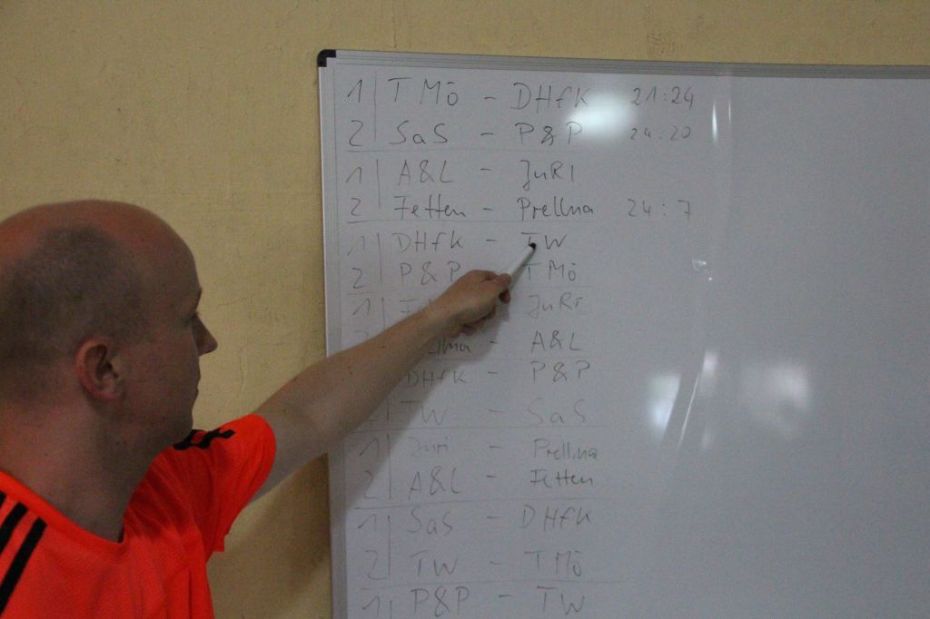 1 TMö - DHfK 21:24
2 SaS - P&P 24:20
1 A&L - JuRI
2 Fetten - Prellma 24:7
1 DHfK - TW
2 P&P TMö
1 JuRI
A&L
DHfK - P&P
TW - SaS
1 Juri - Prellma
2 A&L - Fetten
1 SaS - DHfK
2 TW - TMö
1 P&P - TW